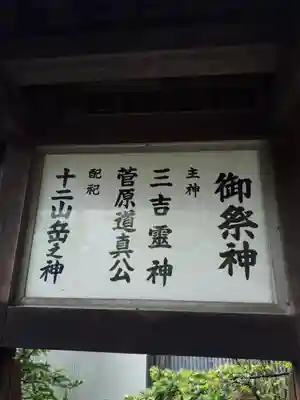 御祭神
主神
三吉靈神
菅原道真公
配祀
十二山岳之神